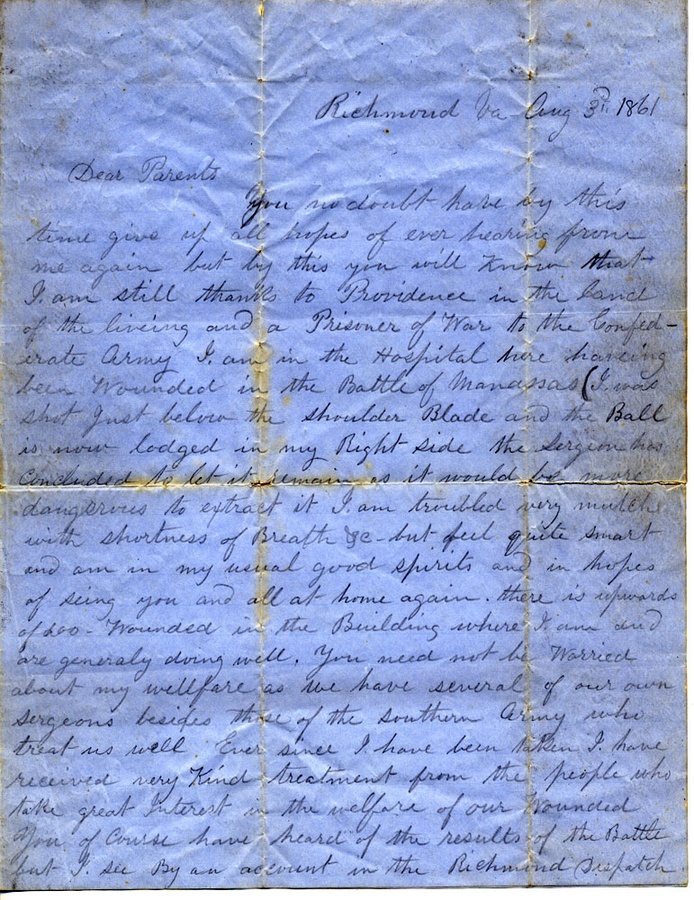 Richmond Va Aug 3rd 1861
Dear Parents
You no doubt have by this
time give up all hopes of ever hearing from
me again but by this you will Know that
I am still thanks to Providence in the land
of the liveing and a Prisoner of War to the Confed-
erate Army I am in the Hospital here haveing
been Wounded in the Battle of Manassas (I was
shot Just below the shoulder Blade and the Ball
is now lodged in my Right side the Sergeon has
Concluded to let it remain as it would be more
dangerous to extract it I am troubled very mutch
with shortness of Breath &c - but feel quite smart
and am in my usual good spirits and in hopes
of seing you and all at home again. there is upwards
of 600 - Wounded in the Building where I am and
are generaly doing well. You need not be Worried
about my wellfare as we have several of our own
Sergeons besides those of the southern Army who
treat us well Ever since I have been taken I have
received very Kind treatment from the people who
take great Interest in the welfare of our Wounded
You of Course have heard of the results of the Battle
but I see By an account in the Richmond Dispatch